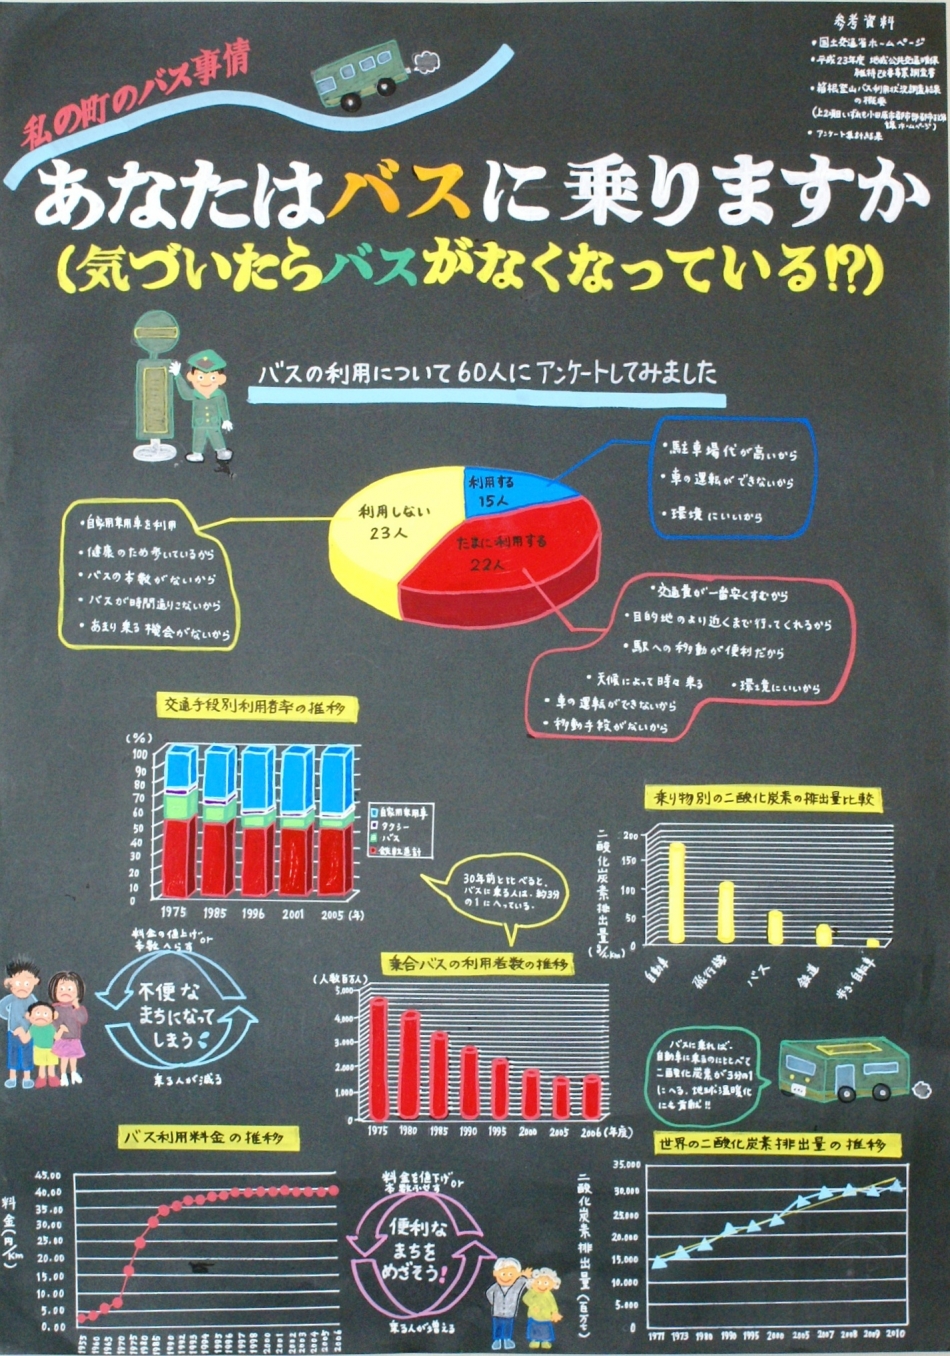 参考資料
• 国土交通省ホームページ
• 平成23年度 地域公共交通確保
維持改善事業調査書
• 箱根登山バス利用状況調査結果
の概要
• アンケート集計結果
私の町のバス事情
あなたはバスに乗りますか
(気づいたらバスがなくなっている!?)
バスの利用について60人にアンケートしてみました
• 駐車場代が高いから
• 車の運転ができないから
• 環境にいいから
利用する
15人
利用しない
23人
たまに利用する
22人
• 自家用乗用車を利用
• 健康のため歩いているから
• バスの本数がないから
• バスが時間通りこないから
• あまり乗る機会がないから
• 交通費が一番安くすむから
• 目的地のより近くまで行ってくれるから
• 駅への移動が便利だから
• 天候によって時々乗る • 環境にいいから
• 車の運転ができないから
• 移動手段がないから
交通手段別利用者率の推移
(%)
100
90
80
70
60
50
40
30
20
10
0
1975 1985 1996 2001 2005 (年)
自家用乗用車
タクシー
バス
鉄軌道計
乗り物別の二酸化炭素の排出量比較
二酸化炭素排出量
200
150
100
50
0
自動車 飛行機 バス 鉄道 歩き・自転車
30年前と比べると、
バスに乗る人は、約3分
の1にへっている。
料金の値上げor
本数へらす
不便な
まちになって
しまう
乗る人が減る
乗合バスの利用者数の推移
(人数百万人)
5,000
4,000
3,000
2,000
1,000
0
1975 1980 1985 1990 1995 2000 2005 2006 (年度)
バスに乗れば、
自動車に乗るのにくらべて
二酸化炭素が3分の1
にへる。地球温暖化
にも貢献!!
バス利用料金の推移
料金(円/Km)
45.00
40.00
35.00
30.00
25.00
20.00
15.00
10.00
5.00
0.00
料金を値下げor
便利な
まちを
めざそう!
乗る人が増える
世界の二酸化炭素排出量の推移
二酸化炭素排出量(百万t)
35.000
30.000
25.000
20.000
15.000
10.000
5.000
0
1971 1973 1980 1990 1995 2000 2005 2007 2008 2009 2010